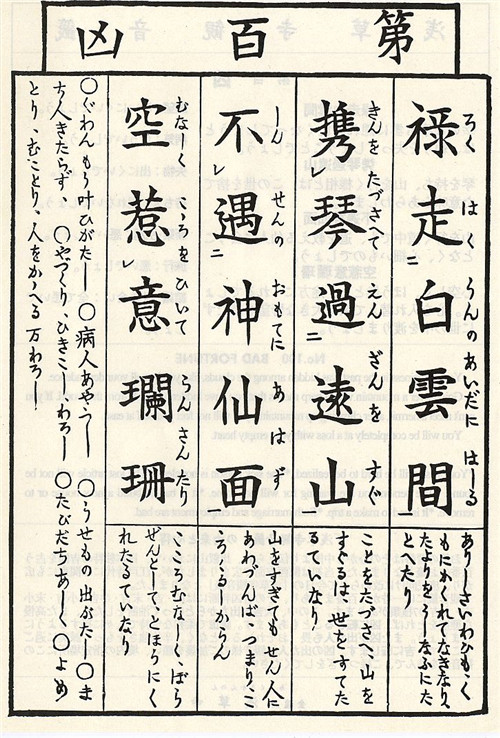 第百凶
ろく はく うんのあいだに はしる
禄走ニ白雲間
ありさいわひもく
もにかくれてなきなり、
たよりをうしなふにた
とへたり
きんをたづさへて えんざんを すぐ
携レ琴過ニ遠山
ことをたづさへて山を
すぐるは、世をすてた
るていなり
しんせんの おもてに あはず
不レ遇ニ神仙面
山をすぎてもせん人に
あわづんば、つまりこ
むなしく こころをひいて らんさんた
空惹レ意瓓珊
こころむなしく、ぼう
ぜんとしてとほうにく
れたるていなり
〇ぐわんもう叶ひがたし〇病人あやうし〇うせもの出がたし〇ま
ち人きたらず、〇やづくり、ひきこしわろし〇たびだちあしく〇よめ
とり、むことり、人をかゝへる 万わろし